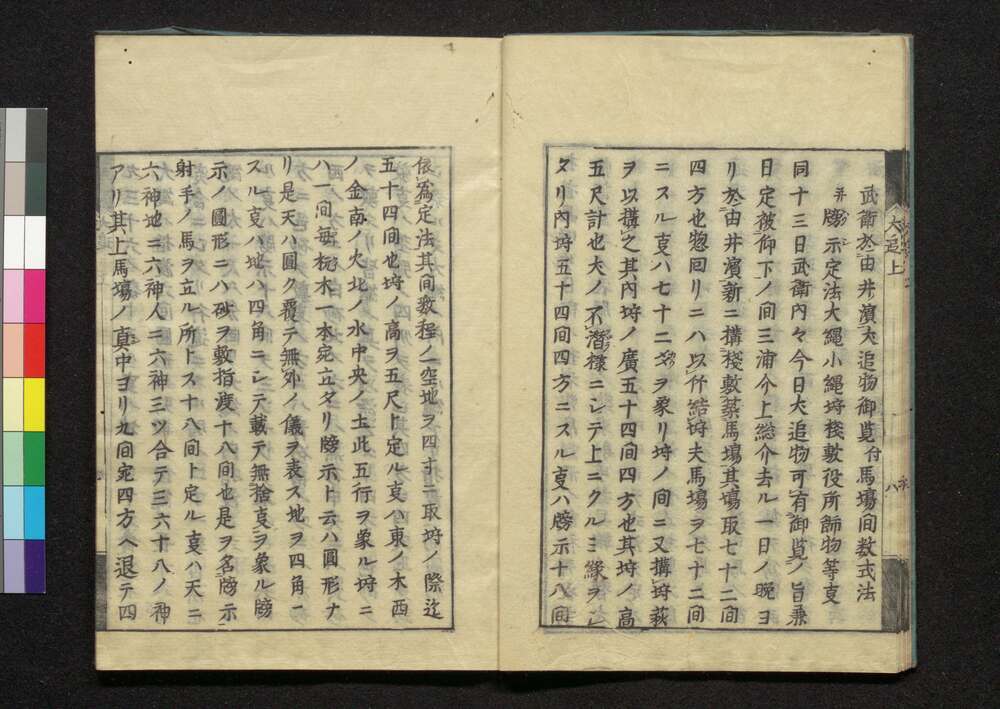 武衛於由井濱犬追物御覧付馬場間数式法
并牓示定法大繩小繩埒棧敷役所餝物等叓
同十三日武衛内々今日犬追物可有御覧ノ旨兼
日定被仰下ノ間三浦介上総介去ル一日ノ晩ヨ
リ於由井濱新ニ搆棧敷築馬場其場取七十二間
四方也惣囘リニハ以竹結埒夫馬場ヲ七十二間
ニスル叓ハ七十二ヲ象リ埒ノ間ニ又搆埒萩
ヲ以搆之其内埒ノ廣五十四間四方也其埒ノ高
五尺計也犬ノ不潜様ニシテ上ニクルミ縁ヲシ
タリ内埒五十四間四方ニスル叓ハ牓示十八間
依為定法其間数程ノ空地ヲ四方ニ取埒ノ際迄
五十四間也埒ノ高ヲ五尺ト定ル叓ハ東ノ木西
ノ金南ノ火北ノ水中央ノ土此五行ヲ象ル埒ニ
ハ一間毎杭木一本宛立タリ牓示ト云ハ圓形ナ
リ是天ハ圓ク覆テ無外ノ儀ヲ表ス地ヲ四角ニ
スル叓ハ地ハ四角ニシテ載テ無捨叓ヲ象ル牓
示ノ圓形ニハ砂ヲ敷指渡十八間也是ヲ名牓示
射手ノ馬ヲ立ル所トス十八間ト定ル叓ハ天ニ
六神地ニ六神人ニ六神三ツ合テ三六十八ノ神
アリ其上馬場ノ真中ヨリ九間宛四方ヘ退テ四
犬追上
八